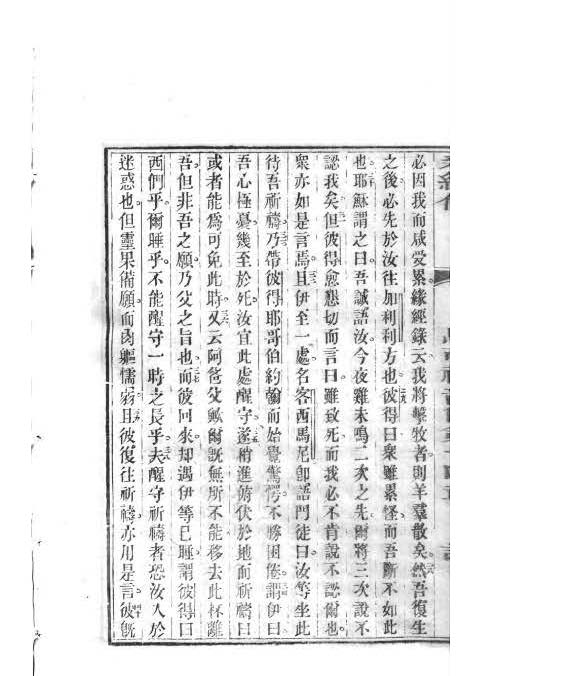 必因我而咸受累緣經錄云我將擊牧者則羊羣散矣然吾復生
之後必先於汝往加利利方也彼得曰衆雖累怪而吾斷不如此
也耶穌謂之曰吾誠語汝今夜雞未鳴二次之先爾將三次說不
認我矣但彼得愈懇切而言曰雖致死而我必不肯說不認爾也
衆亦如是言焉且伊至一處名客西馬尼卽語門徒曰汝等坐此
待吾祈禱乃帶彼得耶哥伯約翰而始覺驚愕不勝困倦謂伊曰
吾心極憂幾至於死汝宜此處醒守遂稍進俯伏於地而祈禱曰
或者能爲可免此時又云阿爸父歟爾旣無所不能移去此杯離
吾但非吾之願乃父之旨也而彼回來却遇伊等已睡謂彼得曰
西們乎爾睡乎不能醒守一時之長乎夫醒守祈禱者恐汝入於
迷惑也但靈果備願而肉軀懦弱且彼復往祈禱亦用是言彼旣